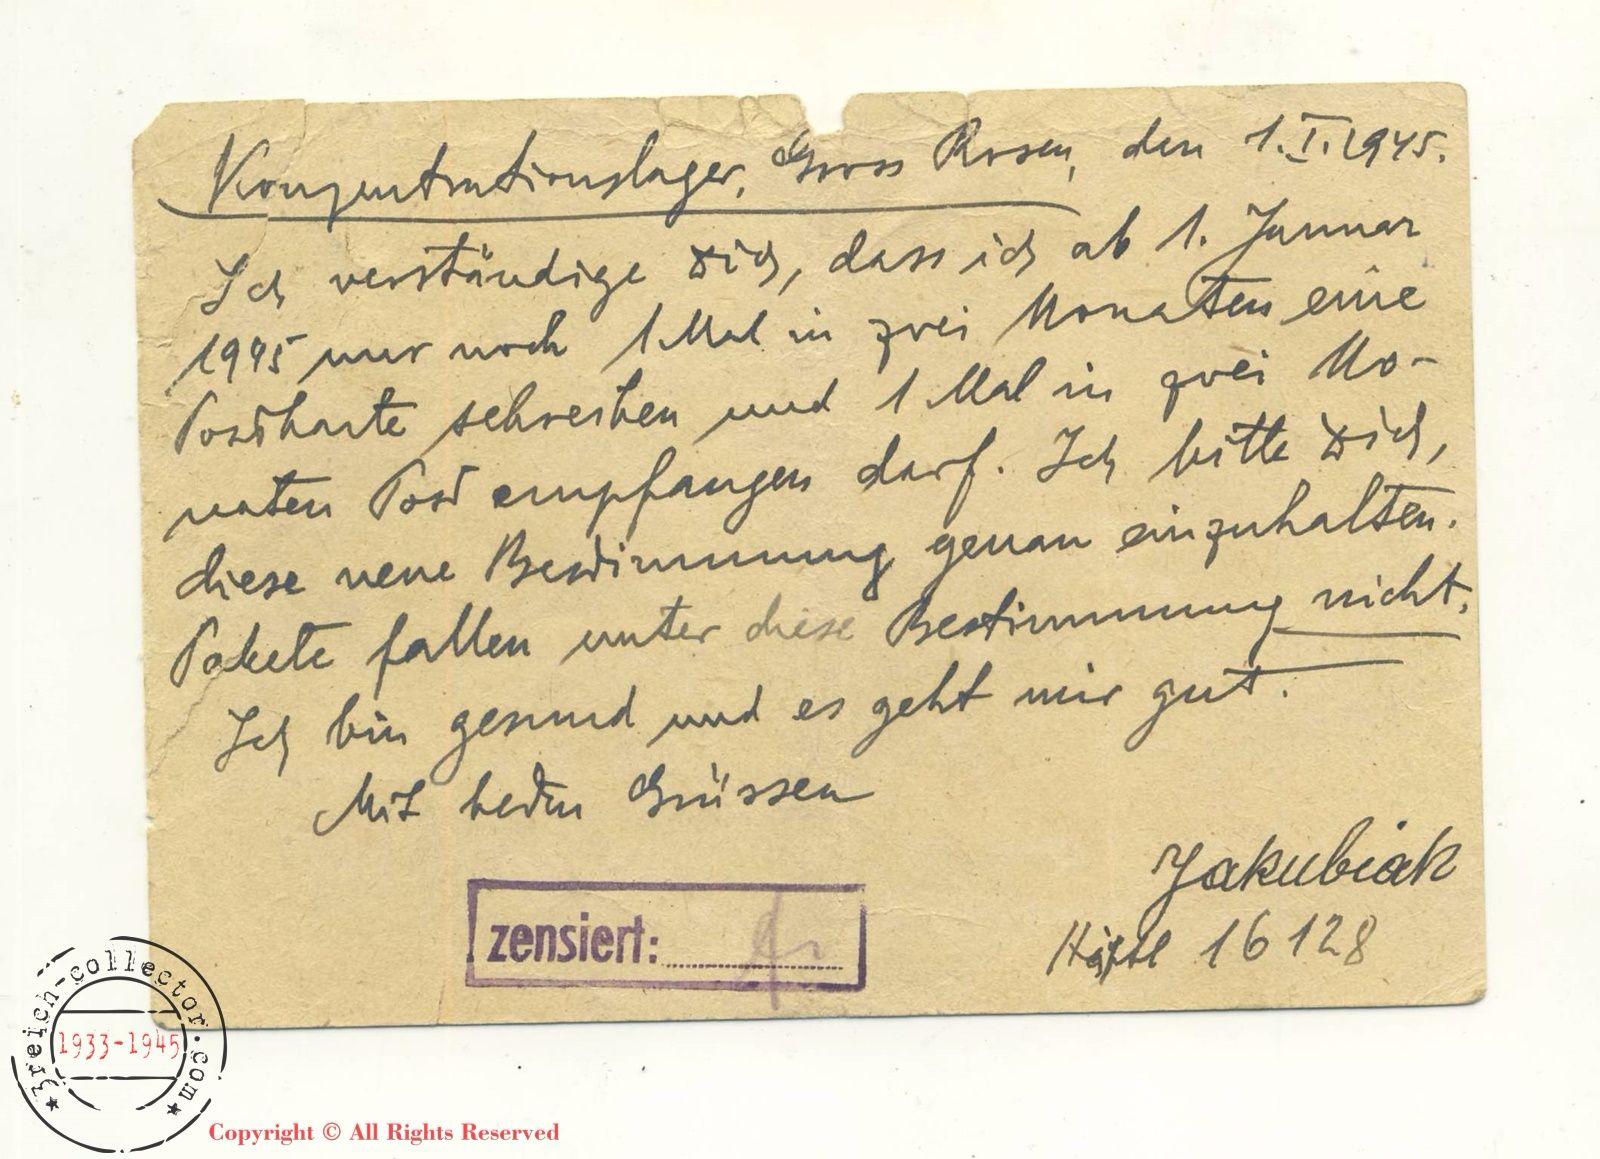 Konzentrationslager, Gross Rosen, den 1.I.1945.
Ich verständige Dich, dass ich ab 1. Januar
1945 nur noch 1 Mal in zwei Monaten eine
Postkarte schreiben und 1 Mal in zwei Mo-
naten Post empfangen darf. Ich bitte Dich,
diese neue Bestimmung genau einzuhalten.
Pakete fallen unter diese Bestimmung nicht.
Ich bin gesund und es geht mir gut.
Mit Grüssen
Jakubiak
Häftl 16128
zensiert:
3reich-collector.com
1933-1945
Copyright © All Rights Reserved